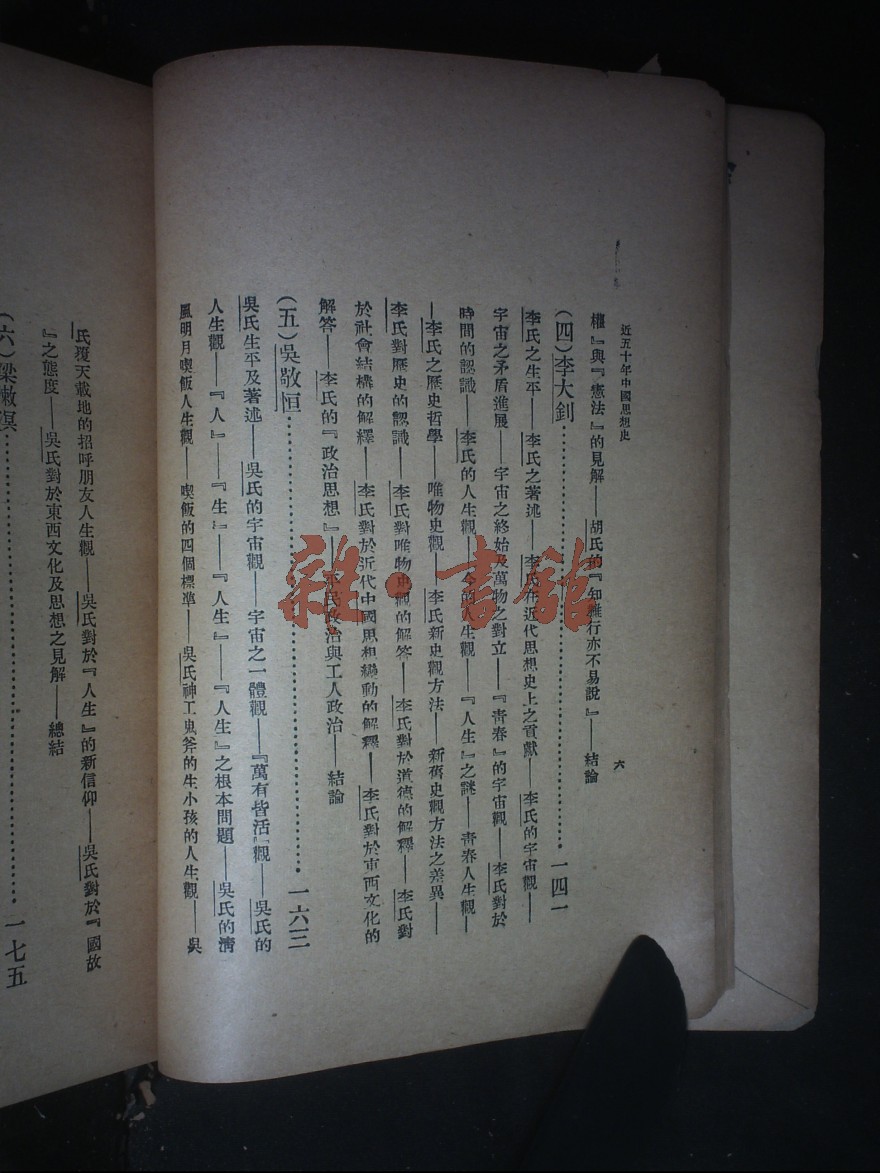 近五十年中國思想史
六
權』與『憲法』的見解——胡氏的『知難行亦不易說』——結論
(四)李大釗……一四一
李氏之生平——李氏之著述——李氏在近代思想史上之貢獻——李氏的宇宙觀——
宇宙之矛盾進展——宇宙之終始及萬物之對立——『青春』的宇宙觀——李氏對於
時間的認識——李氏的人生觀——今的人生觀——『人生』之謎——青春人生觀—
—李氏之歷史哲學——唯物史觀——李氏新史觀方法——新舊史觀方法之差異——
李氏對歷史的認識——李氏對唯物史觀的解答——李氏對於道德的解釋——李氏對
於社會結構的解釋——李氏對於近代中國思想變動的解釋——李氏對於東西文化的
解答——李氏的『政治思想』——平民政治與工人政治——結論
(五)吳敬恒……一六三
吳氏生平及著述——吳氏的宇宙觀——宇宙之一體觀——『萬有皆活』觀——吳氏的
人生觀——『人』——『生』——『人生』——『人生』之根本問題——吳氏的清
風明月喫飯人生觀——喫飯的四個標準——吳氏神工鬼斧的生小孩的人生觀——吳
氏覆天載地的招呼朋友人生觀——吳氏對於『人生』的新信仰——吳氏對於『國故
』之態度——吳氏對於東西文化及思想之見解——總結
(六)梁漱溟……一七五
雜·書館